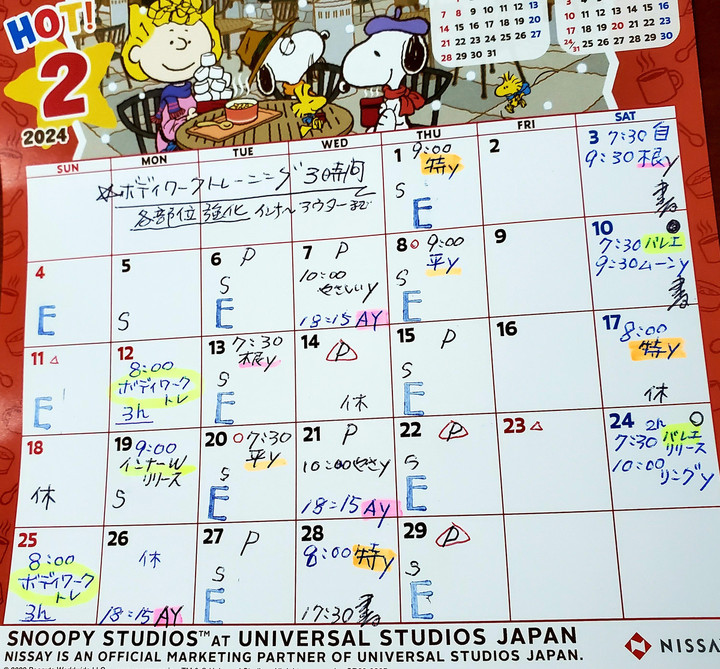 HOT!
2
2024
7 8 9 10 11 12 13
14 15 16 17 18 19 20
21 22 23 24 25 26 27
28 29 30 31
3 4 5 6 7 8 9
10 11 12 13 14 15 16
17 18 19 20 21 22 23
24/31 25 26 27 28 29 30
SUN MON TUE WED THU FRI SAT
☆ボディワークトレーニング 3時間
各部位強化 インナー アウターまで
1 9:00
特y
S
E
2
3 7:30 自
9:30 根y
書
4
E
5
S
6 P
S
E
7 P
10:00
やさしいy
18:15 AY
8 9:00
平y
S
E
9
10
7:30 バレエ
9:30 ムーンy
書
11
E
12
8:00
ボディワーク
トレ
3h
13 7:30
根y
S
E
14 P
休
15 P
S
E
16
17 8:00
特y
休
18
休
19 9:00
インナーW
リリース
S
20 7:30
平y
S
E
21 P
10:00 やさy
18:15 AY
22 P
S
E
23
24 2h
7:30 バレエ
リリース
10:00
リングy
25
8:00
ボディワーク
トレ
3h
26
休
18:15 AY
27 P
S
E
28
8:00 特y
17:30 書
29 P
S
E
SNOOPY STUDIOS™ AT UNIVERSAL STUDIOS JAPAN
NISSAY IS AN OFFICIAL MARKETING PARTNER OF UNIVERSAL STUDIOS JAPAN.
NISSA